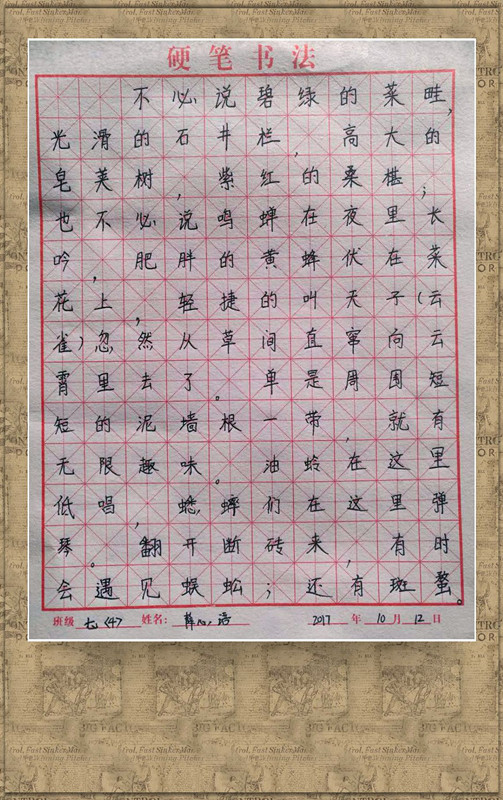 硬笔书法
不必说碧绿的菜畦,
光滑的石井栏,高大的
皂荚树,紫红的桑椹;
也不必说鸣蝉在夜里长
吟,肥胖的黄蜂伏在菜
花上,轻捷的叫天子(云
雀)忽然从草间直窜向云
霄里去了。单是周围短
短的泥墙根一带,就有
无限趣味。油蛉在这里
低唱,蟋蟀们在这里弹
琴。翻开断砖来,有时
会遇见蜈蚣;还有斑蝥。
班级 七(4) 姓名: 薛 2017年10月12日